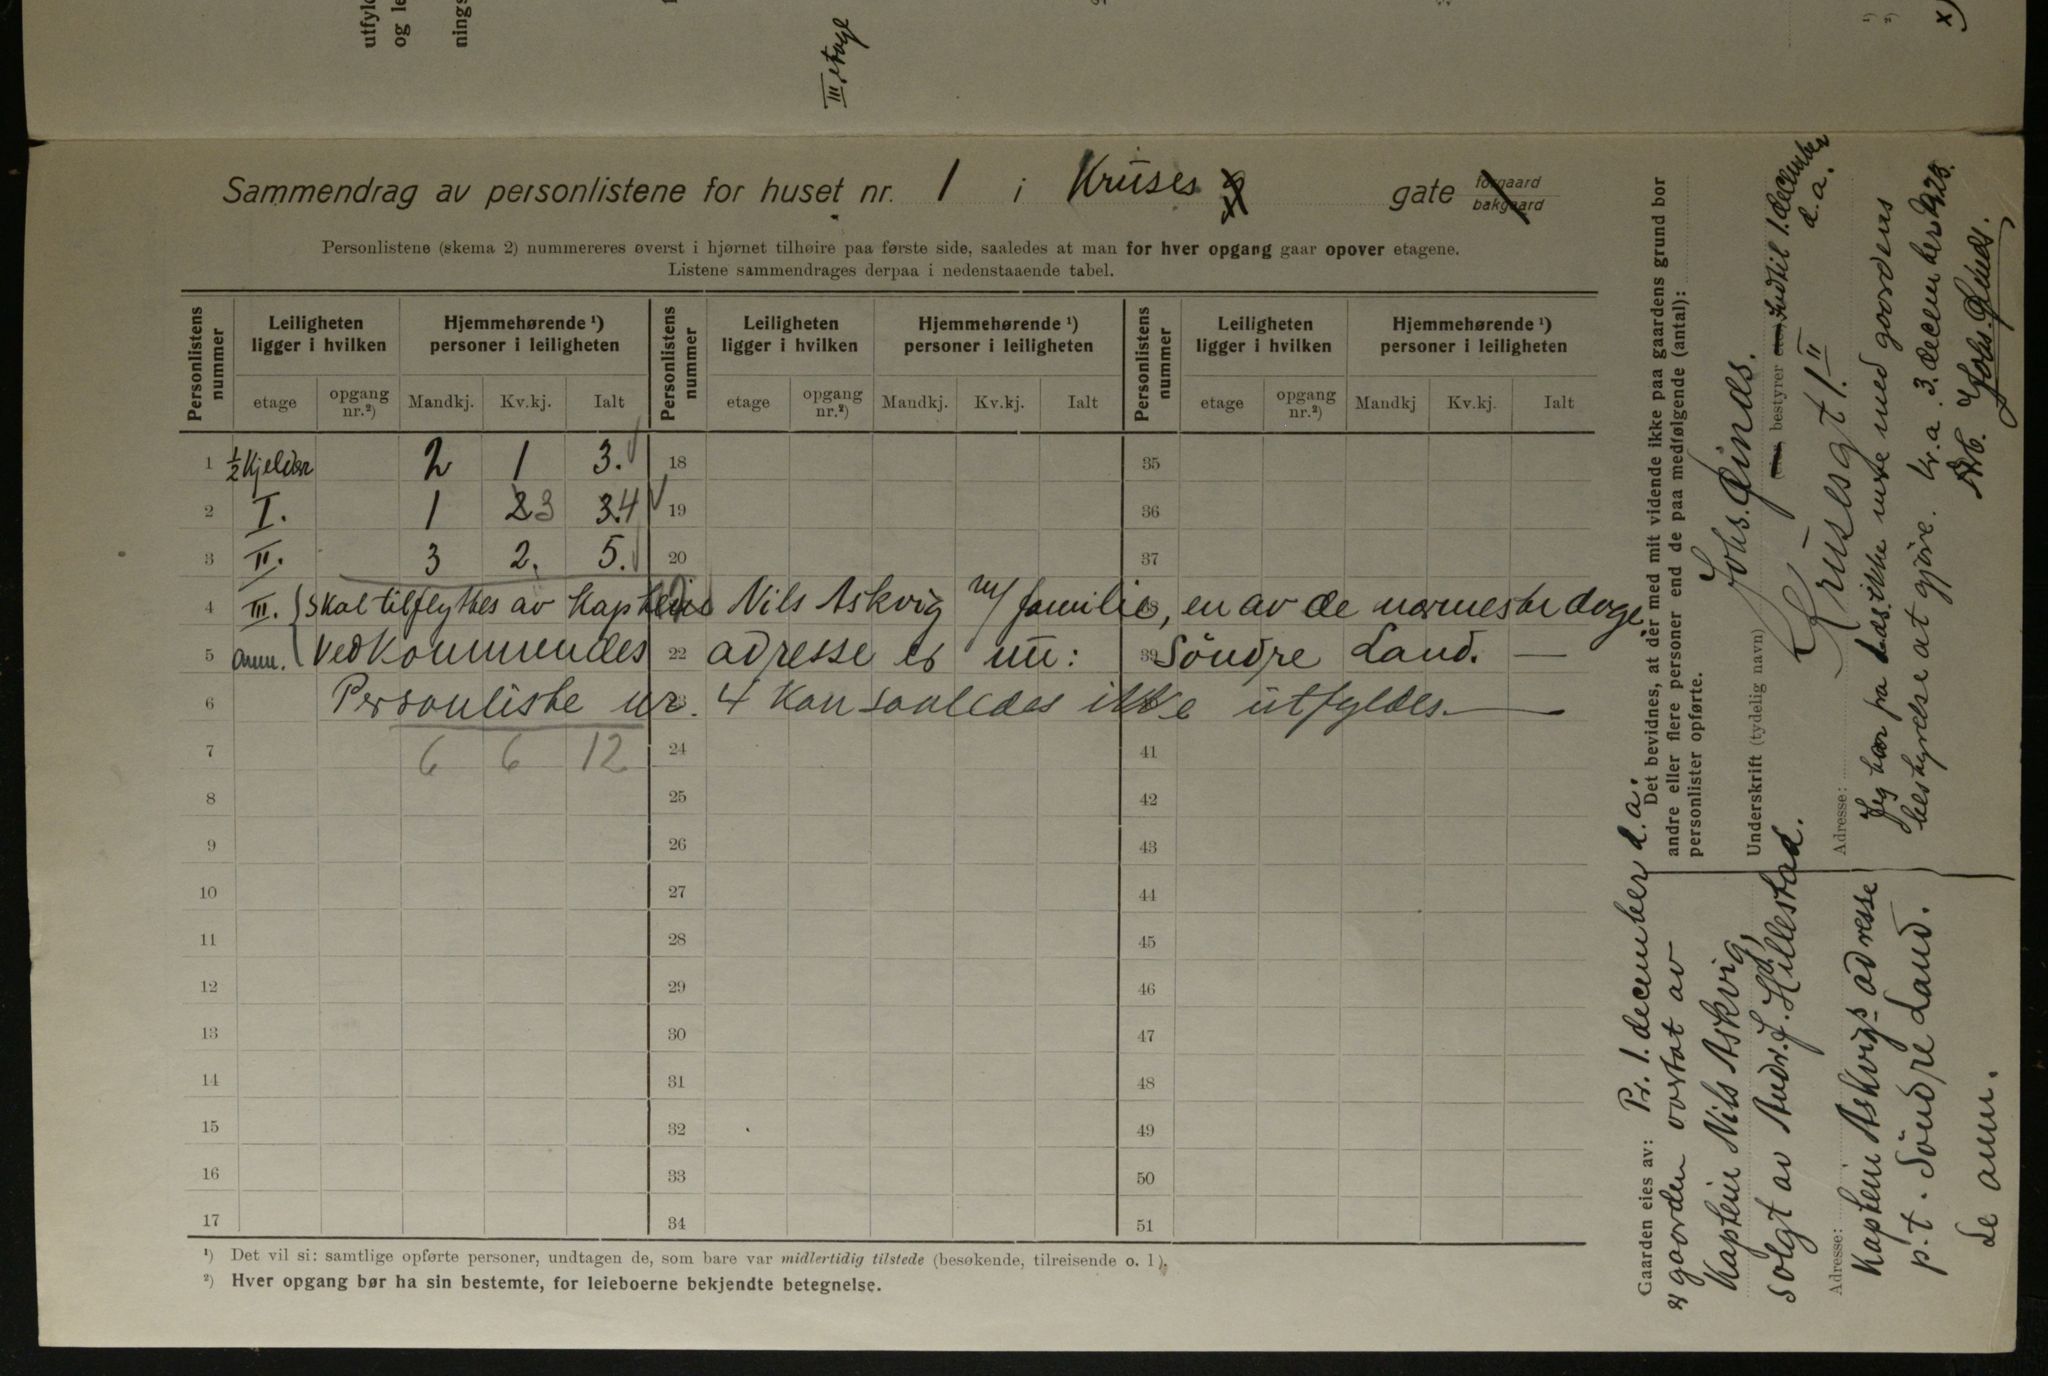 utfyld
og le
nings
III etage
Sammendrag av personlistene for huset nr. 1 i Kruses gate forgaard bakgaard
Personlistene (skema 2) nummereres øverst i hjørnet tilhøire paa første side, saaledes at man for hver opgang gaar opover etagene.
Listene sammendrages derpaa i nedenstaaende tabel.
Personlistens nummer Leiligheten ligger i hvilken Hjemmehørende ¹) personer i leiligheten Personlistens nummer Leiligheten ligger i hvilken Hjemmehørende ¹) personer i leiligheten Personlistens nummer Leiligheten ligger i hvilken Hjemmehørende ¹) personer i leiligheten
etage opgang nr.²) Mandkj. Kv.kj. Ialt etage opgang nr.²) Mandkj. Kv.kj. Ialt etage opgang nr.²) Mandkj Kv.kj. Ialt
1 ½ Kjelder 2 1 3. 18 35
2 I. 1 2 3 3. 4 19 36
3 II. 3 2. 5. 20 37
4 III. skal tilflyttes av Kaptein Nils Askvig m/ familie, en av de nærmeste dage.
5 anm. Vedkommendes 22 adresse er nu: 39 Söndre Land. —
6 Personliste nr. 4 kan saaledes ikke utfyldes. —
7 6 6 12 24 41
8 25 42
9 26 43
10 27 44
11 28 45
12 29 46
13 30 47
14 31 48
15 32 49
16 33 50
17 34 51
¹) Det vil si: samtlige opførte personer, undtagen de, som bare var midlertidig tilstede (besøkende, tilreisende o. l).
²) Hver opgang bør ha sin bestemte, for leieboerne bekjendte betegnelse.
Det bevidnes, at der med mit vidende ikke paa gaardens grund bor
andre eller flere personer end de paa medfølgende (antal):
personlister opførte.
Underskrift (tydelig navn) Johs.
bestyrer indtil 1. december d. a.
Adresse: Krusesgt 1. II
Jeg har fra ikke mere med gaardens
bestyrelse at gjöre. Kr.a. 3. december 1923.
Johs.
Gaarden eies av: Pr. 1. december d. a.
er gaarden overtat av
Kaptein Nils Askvig,
solgt av Andr. J. Hillestad.
Adresse:
Kaptein Askvigs adresse
p.t. Söndre Land.
Se anm.
¹)
²)
x)